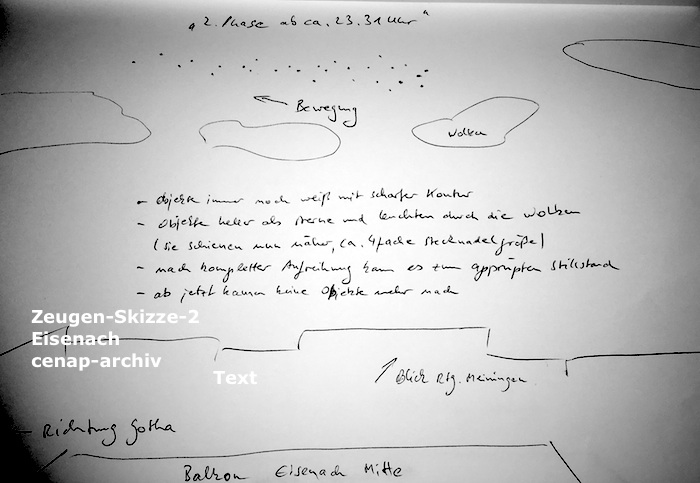 "2. Phase ab ca. 23.31 Uhr"
Bewegung
Wolken
- Objekte immer noch weiß mit scharfer Kontur
- Objekte heller als Sterne und leuchten durch die Wolken
(sie schienen nun näher, ca. 4fache Stecknadelgröße)
- nach kompletter Aufreihung kam es zum apprupten Stillstand
- ab jetzt kamen keine Objekte mehr nach
Zeugen-Skizze-2
Eisenach
cenap-archiv
Text
Blick Rtg. Meiningen
Richtung Gotha
Balkon Eisenach Mitte